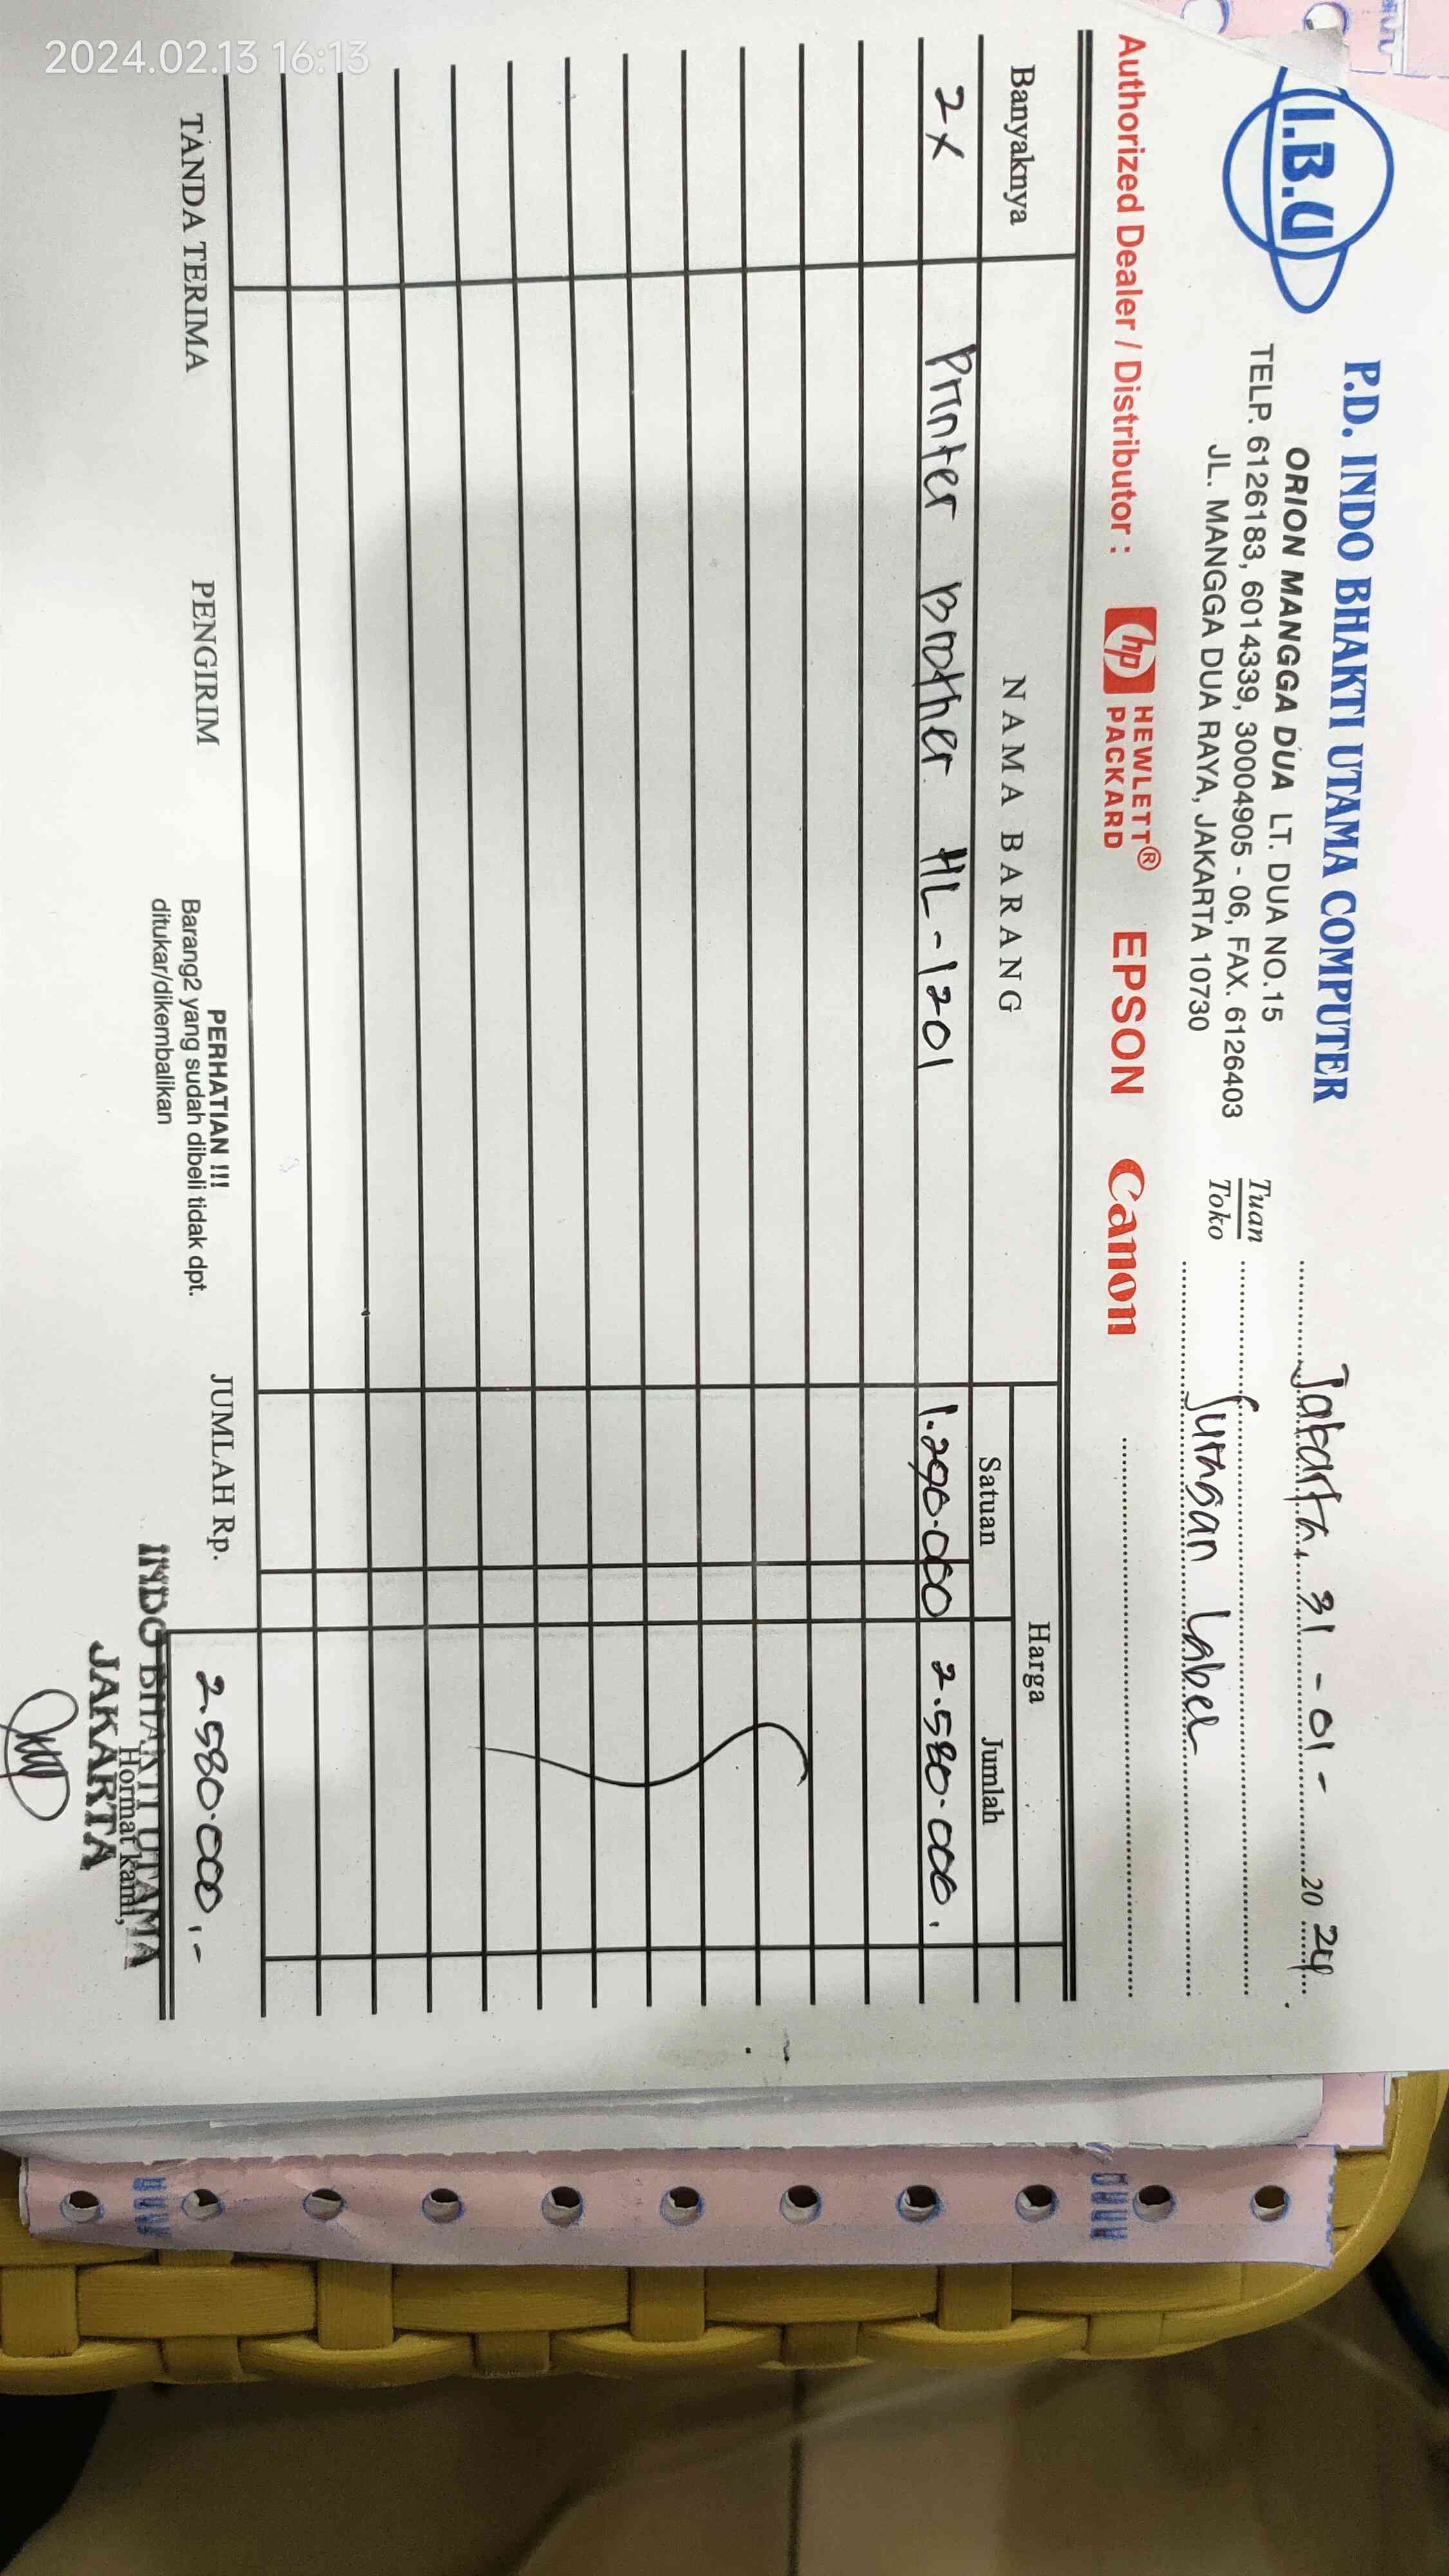 2024.02.13 16:13
I.B.U
P.D. INDO BHAKTI UTAMA COMPUTER
ORION MANGGA DUA LT. DUA NO.15
TELP. 6126183, 6014339, 30004905 - 06, FAX. 6126403
JL. MANGGA DUA RAYA, JAKARTA 10730
Jakarta, 31 - 01 - 20 24
Tuan
Toko
Label
Authorized Dealer / Distributor : hp HEWLETT® PACKARD EPSON Canon
Banyaknya NAMA BARANG Harga
Satuan Jumlah
2x Printer Brother HL-1201 1.290.000 2.580.000.
TANDA TERIMA PENGIRIM JUMLAH Rp. 2.580.000,-
PERHATIAN !!!
Barang2 yang sudah dibeli tidak dpt.
ditukar/dikembalikan
Hormat kami,
INDO BHAKTI UTAMA
JAKARTA